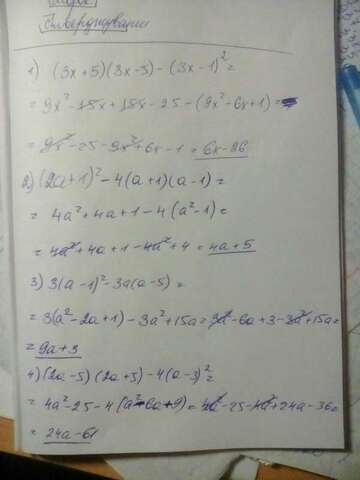 1) (3x+5)(3x-5)-(3x-1)²=
=9x²-15x+15x-25-(9x²-6x+1)=
=9x²-25-9x²+6x-1=6x-26
2) (2a+1)²-4(a+1)(a-1)=
=4a²+4a+1-4(a²-1)=
=4a²+4a+1-4a²+4=4a+5
3) 3(a-1)²-3a(a-5)=
=3(a²-2a+1)-3a²+15a=3a²-6a+3-3a²+15a=
=9a+3
4) (2a-5)(2a+5)-4(a-3)²=
=4a²-25-4(a²-6a+9)=4a²-25-4a²+24a-36=
=24a-61